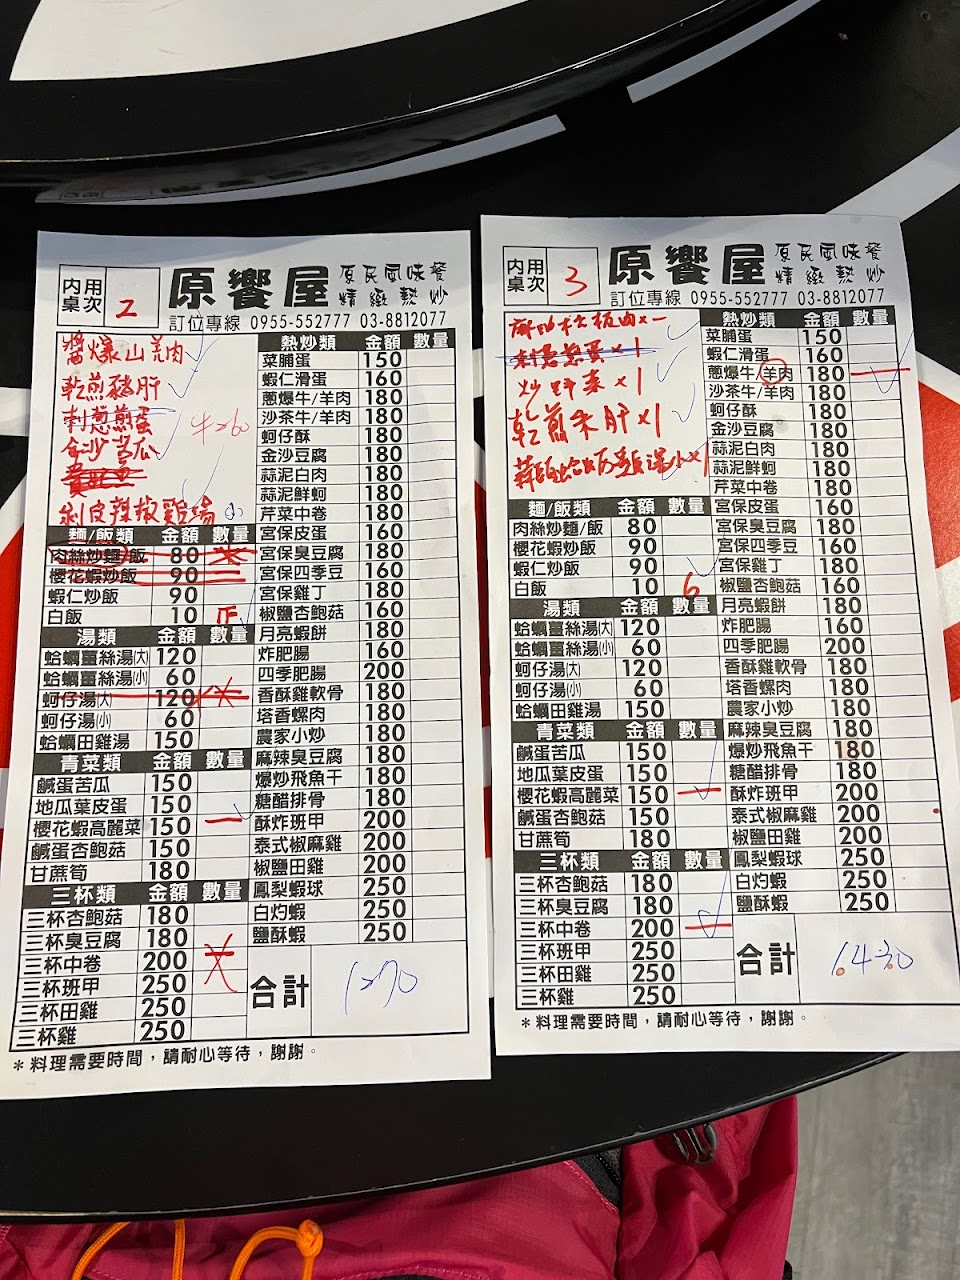 內用桌次
2
原饗屋
原民風味餐
精緻熱炒
訂位專線 0955-552777 03-8812077
醬爆山羌肉
乾煎豬肝
刺蔥煎蛋
金沙苦瓜
剝皮辣椒雞湯 小
麵/飯類 金額 數量
肉絲炒麵/飯 80
櫻花蝦炒飯 90
蝦仁炒飯 90
白飯 10
湯類 金額 數量
蛤蠣薑絲湯(大) 120
蛤蠣薑絲湯(小) 60
蚵仔湯(大) 120
蚵仔湯(小) 60
蛤蠣田雞湯 150
青菜類 金額 數量
鹹蛋苦瓜 150
地瓜葉皮蛋 150
櫻花蝦高麗菜 150 一
鹹蛋杏鮑菇 150
甘蔗筍 180
三杯類 金額 數量
三杯杏鮑菇 180
三杯臭豆腐 180
三杯中卷 200
三杯班甲 250
三杯田雞 250
三杯雞 250
熱炒類 金額 數量
菜脯蛋 150
蝦仁滑蛋 160
蔥爆牛/羊肉 180
沙茶牛/羊肉 180
蚵仔酥 180
金沙豆腐 180
蒜泥白肉 180
蒜泥鮮蚵 180
芹菜中卷 180
宮保皮蛋 160
宮保臭豆腐 180
宮保四季豆 160
宮保雞丁 180
椒鹽杏鮑菇 160
月亮蝦餅 180
炸肥腸 160
四季肥腸 200
香酥雞軟骨 180
塔香螺肉 180
農家小炒 180
麻辣臭豆腐 180
爆炒飛魚干 180
糖醋排骨 180
酥炸班甲 200
泰式椒麻雞 200
椒鹽田雞 200
鳳梨蝦球 250
白灼蝦 250
鹽酥蝦 250
合計 1270
*料理需要時間，請耐心等待，謝謝。
內用桌次
3
原饗屋
原民風味餐
精緻熱炒
訂位專線 0955-552777 03-8812077
刺蔥煎蛋×1
炒野菜×1
乾煎朱肝×1
麵/飯類 金額 數量
肉絲炒麵/飯 80
櫻花蝦炒飯 90
蝦仁炒飯 90
白飯 10 6
湯類 金額 數量
蛤蠣薑絲湯(大) 120
蛤蠣薑絲湯(小) 60
蚵仔湯(大) 120
蚵仔湯(小) 60
蛤蠣田雞湯 150
青菜類 金額 數量
鹹蛋苦瓜 150
地瓜葉皮蛋 150
櫻花蝦高麗菜 150 一
鹹蛋杏鮑菇 150
甘蔗筍 180
三杯類 金額 數量
三杯杏鮑菇 180
三杯臭豆腐 180
三杯中卷 200 一
三杯班甲 250
三杯田雞 250
三杯雞 250
熱炒類 金額 數量
菜脯蛋 150
蝦仁滑蛋 160
蔥爆牛/羊肉 180 一
沙茶牛/羊肉 180
蚵仔酥 180
金沙豆腐 180
蒜泥白肉 180
蒜泥鮮蚵 180
芹菜中卷 180
宮保皮蛋 160
宮保臭豆腐 180
宮保四季豆 160
宮保雞丁 180
椒鹽杏鮑菇 160
月亮蝦餅 180
炸肥腸 160
四季肥腸 200
香酥雞軟骨 180
塔香螺肉 180
農家小炒 180
麻辣臭豆腐 180
爆炒飛魚干 180
糖醋排骨 180
酥炸班甲 200
泰式椒麻雞 200
椒鹽田雞 200
鳳梨蝦球 250
白灼蝦 250
鹽酥蝦 250
合計 1430
*料理需要時間，請耐心等待，謝謝。